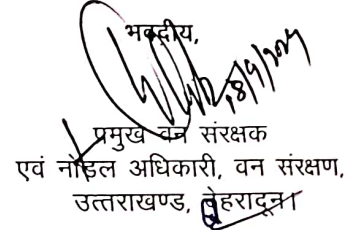 भवदीय,
18/9/2024
प्रमुख वन संरक्षक
एवं नोडल अधिकारी, वन संरक्षण,
उत्तराखण्ड, देहरादून।